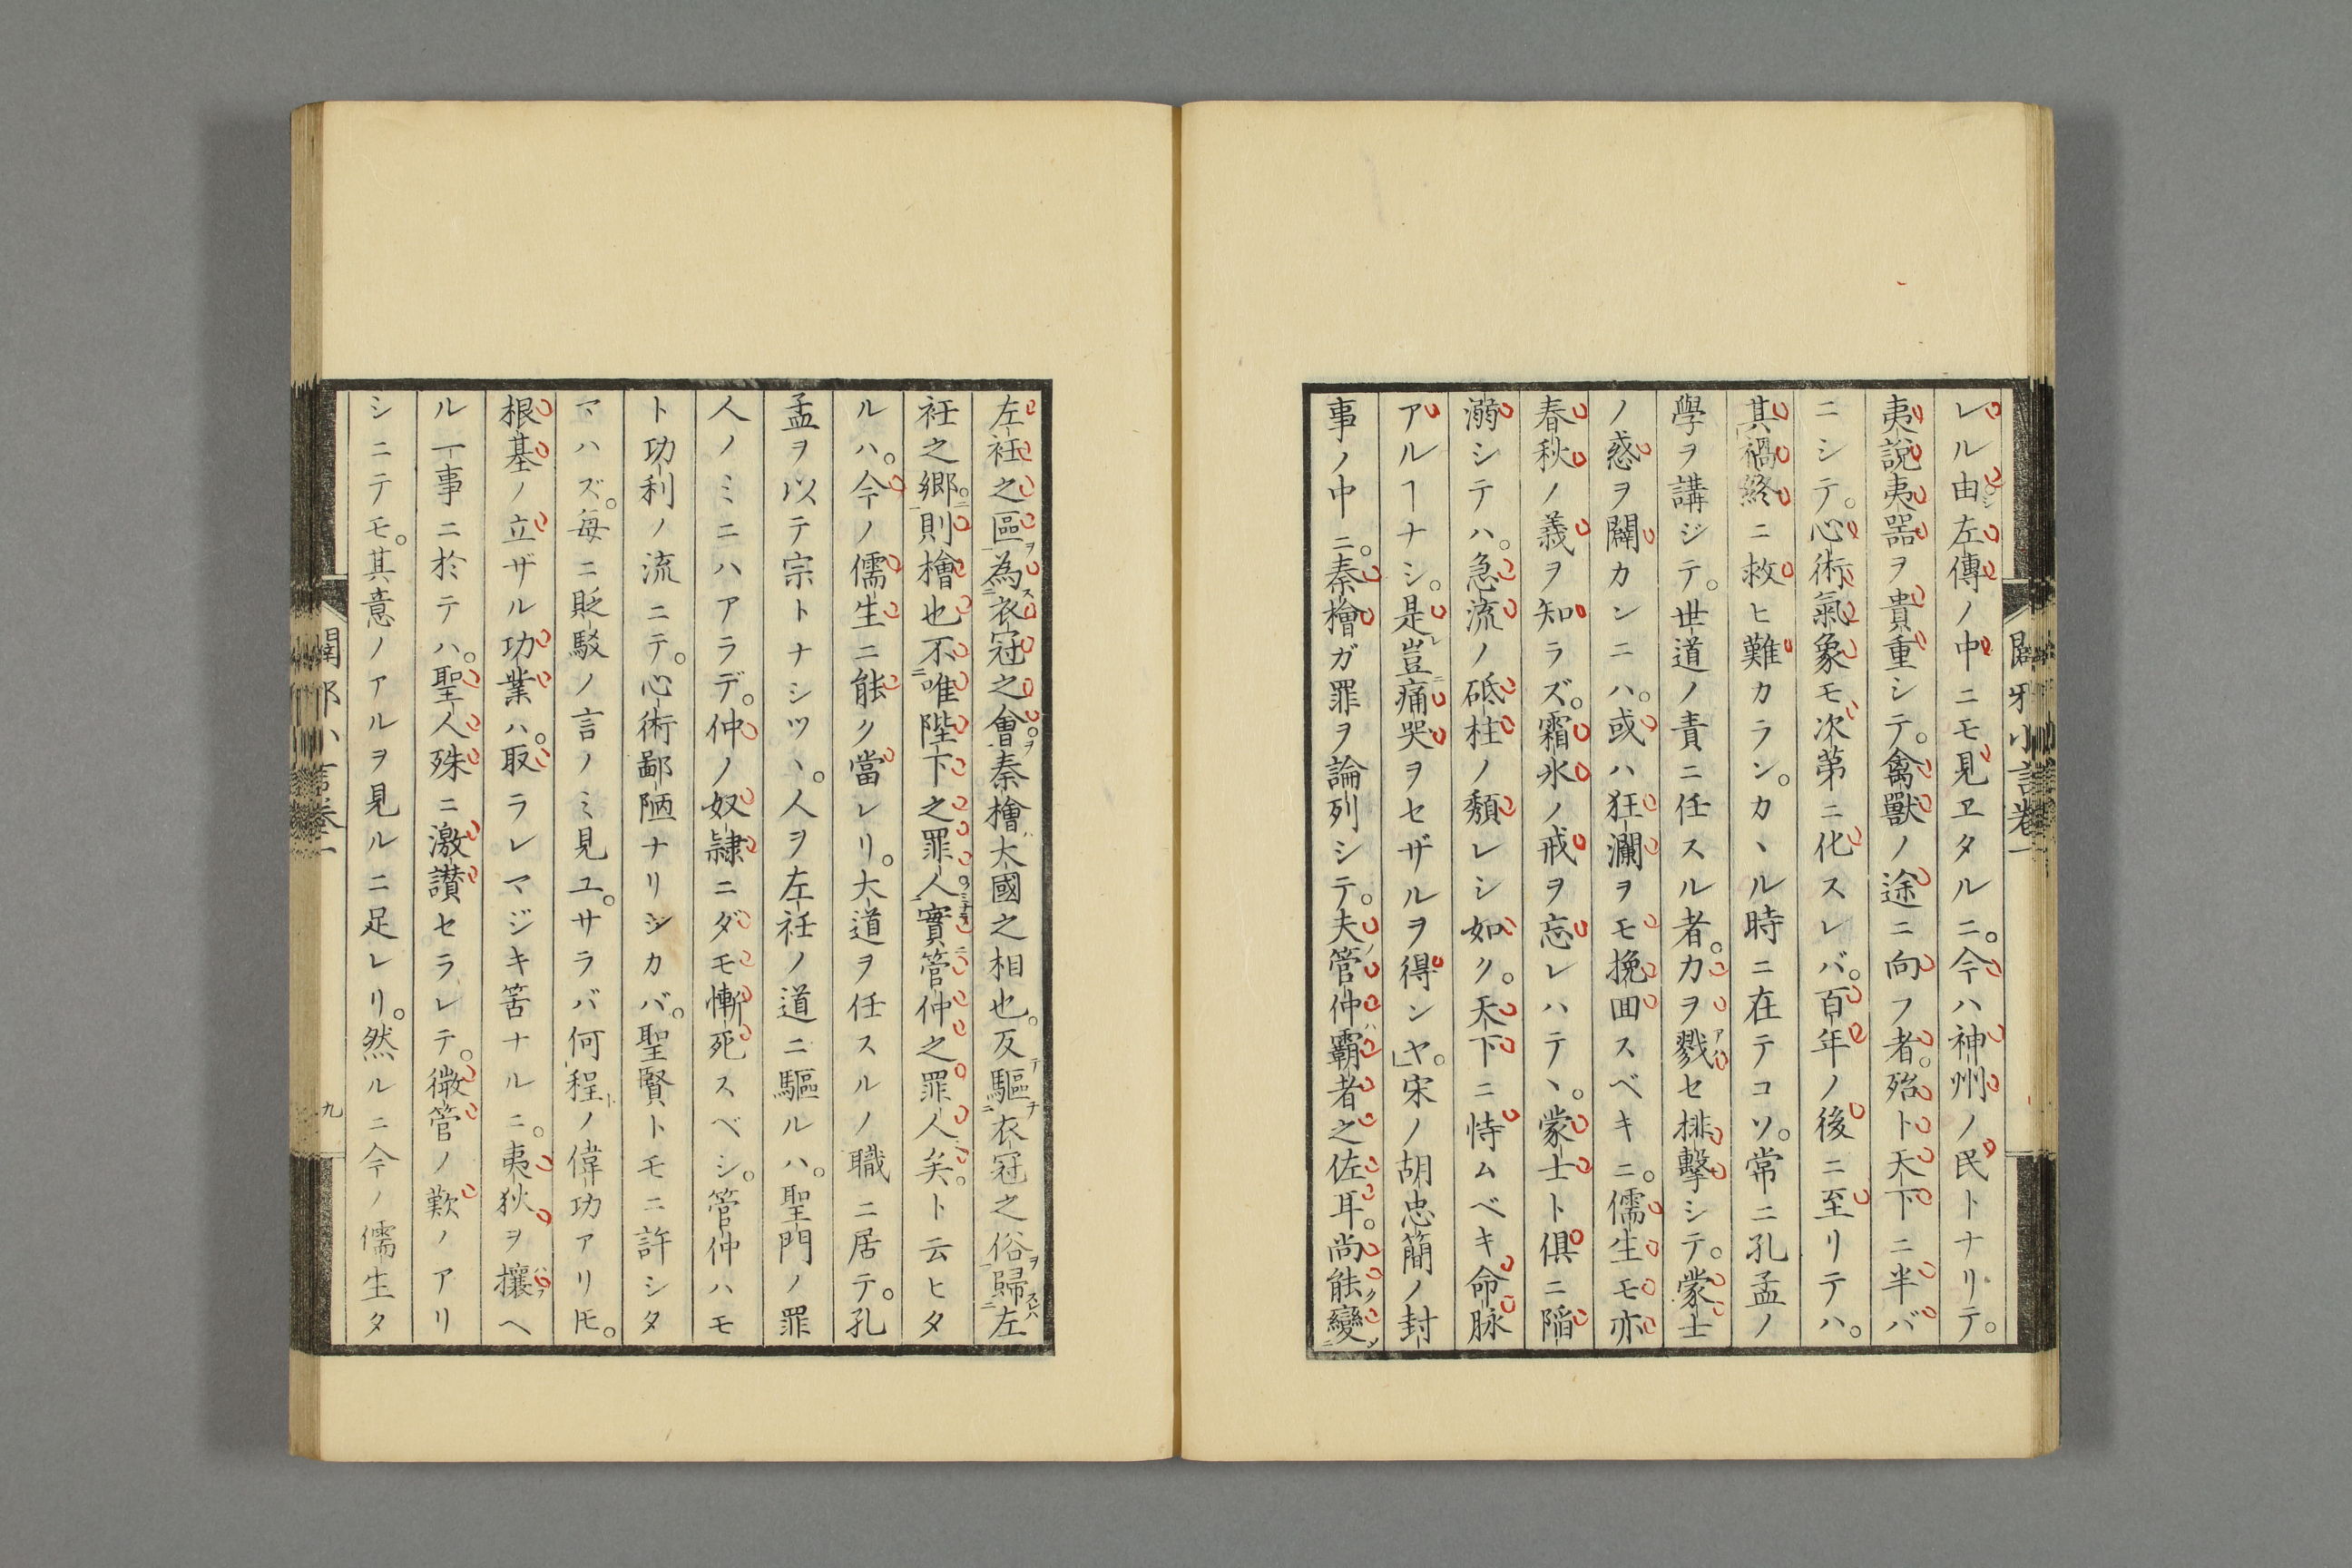 レル由。左傳ノ中ニモ見ヱタルニ。今ハ神州ノ民トナリテ。
夷說夷噐ヲ貴重シテ。禽獸ノ途ニ向フ者。殆ト天下ニ半バ
ニシテ。心術氣象モ次第ニ化スレバ。百年ノ後ニ至リテハ。
其禍終ニ救ヒ難カラン。カヽル時ニ在テコソ。常ニ孔孟ノ
學ヲ講ジテ。世道ノ責ニ任スル者。力ヲ戮セ排擊シテ。蒙士
ノ惑ヲ闢カンニハ。或ハ狂瀾ヲモ挽囬スベキニ。儒生モ亦
春秋ノ義ヲ知ラズ。霜氷ノ戒ヲ忘レハテヽ。蒙士ト俱ニ陷
溺シテハ。急流ノ砥柱ノ頽レシ如ク。天下ニ恃ムベキ命脉
アルヿナシ。是豈痛哭ヲセザルヲ得ンヤ。」宋ノ胡忠簡ノ封
事ノ中ニ。秦檜ガ罪ヲ論列シテ。夫管仲霸者之佐耳。尚能變
左衽之區為衣冠之會。秦檜大國之相也。反驅衣冠之俗歸左
衽之郷。則檜也不唯陛下之罪人。實管仲之罪人矣。ト云ヒタ
ルハ。今ノ儒生ニ能ク當レリ。大道ヲ任スルノ職ニ居テ。孔
孟ヲ以テ宗トナシツヽ。人ヲ左衽ノ道ニ驅ルハ。聖門ノ罪
人ノミニハアラデ。仲ノ奴隷ニダモ慚死スベシ。管仲ハモ
ト功利ノ流ニテ。心術鄙陋ナリシカバ。聖賢トモニ許シタ
マハズ。每ニ貶駁ノ言ノミ見ユ。サラバ何程ノ偉功アリ𪜈。
根基ノ立ザル功業ハ。取ラレマジキ筈ナルニ。夷狄ヲ攘ヘ
ル一事ニ於テハ。聖人殊ニ激讃セラレテ。微管ノ歎ノアリ
シニテモ。其意ノアルヲ見ルニ足レリ。然ルニ今ノ儒生タ
九